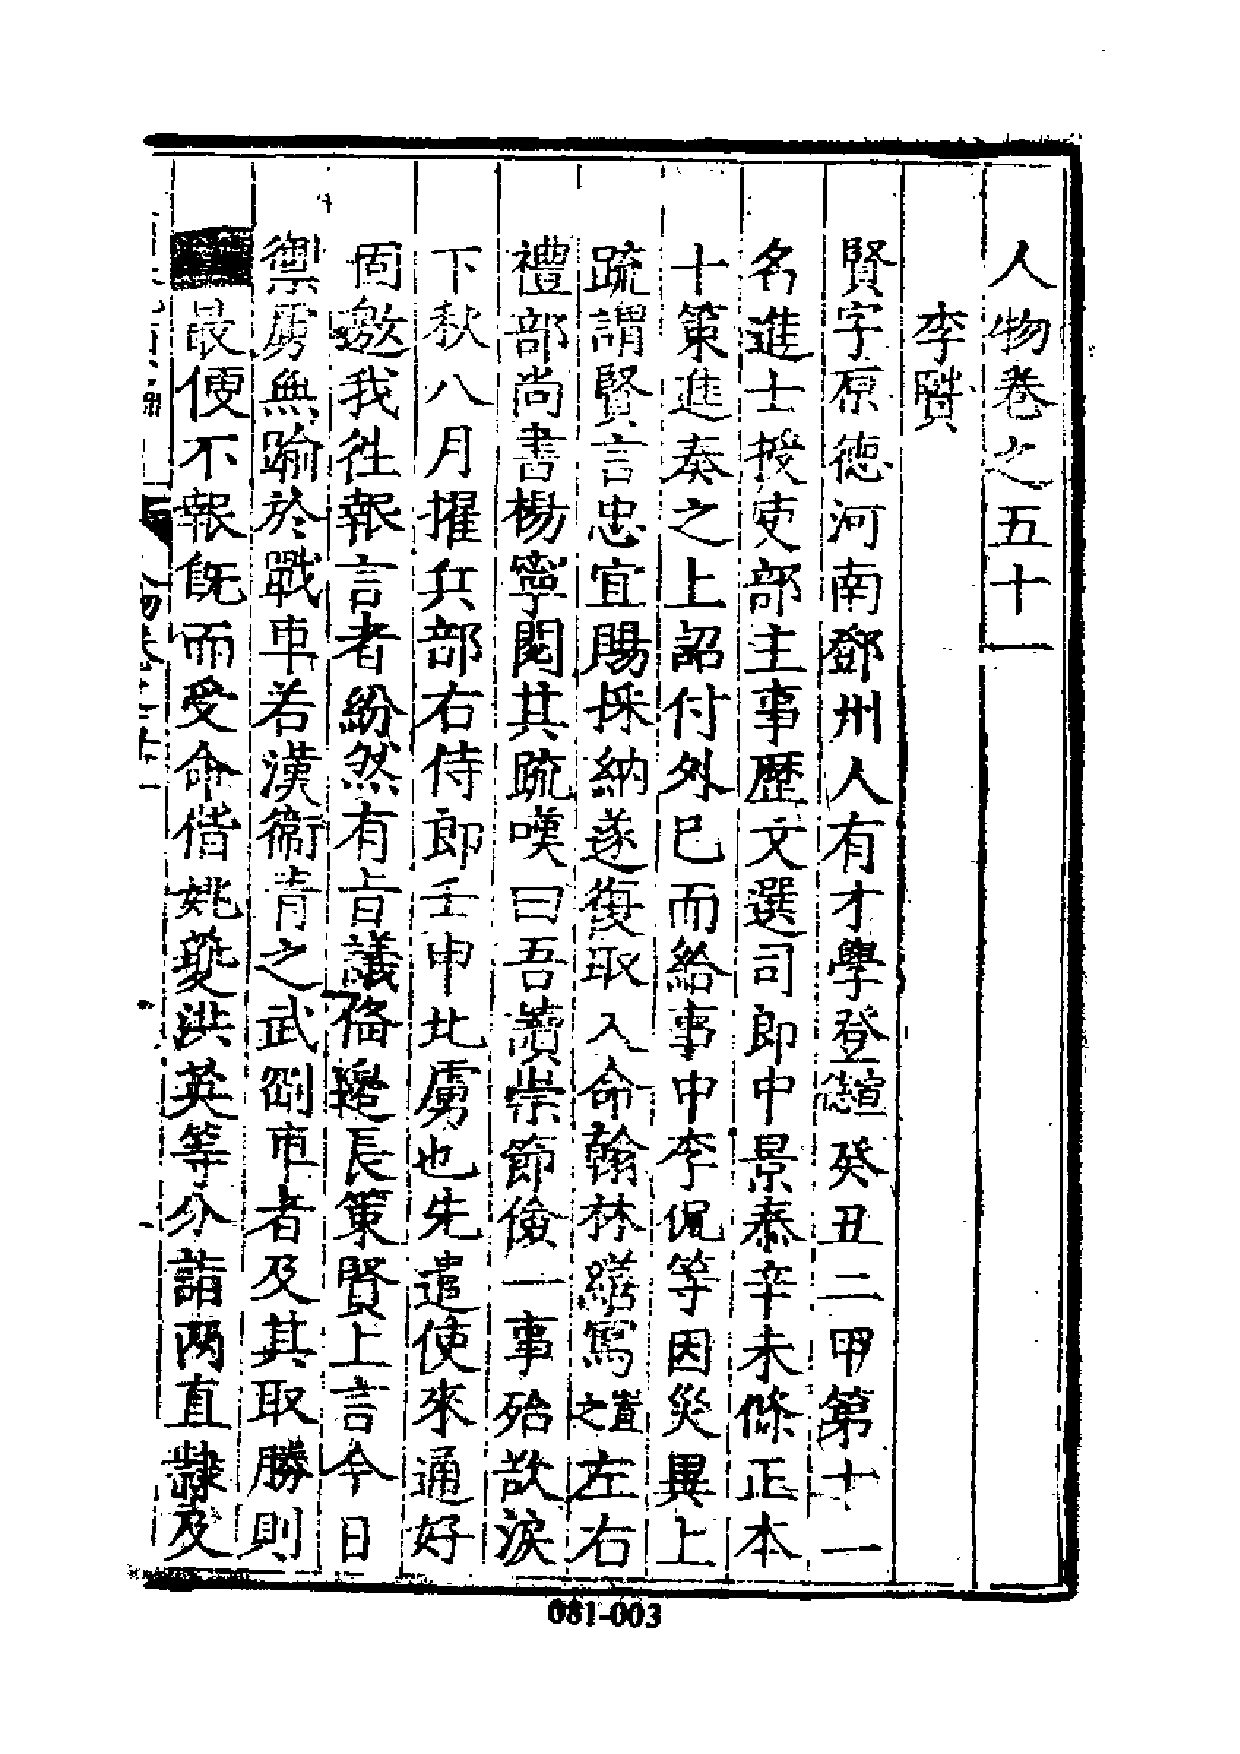 人物卷之五十一
李賢
賢字原德河南鄧州人有才學登宣德癸丑二甲第十一
名進士授吏部主事歷文選司郎中景泰辛未條正本
十策進奏之上詔付外已而給事中李侃等因災異上
疏謂賢言忠宜賜採納遂復取入命翰林繕寫置之左右
禮部尚書楊寧閱其疏嘆曰吾讀崇節儉一事殆欲淚
下秋八月擢兵部右侍郎壬申北虜也先遣使來通好
固邀我徃報言者紛然有旨議備邊長策賢上言今日
禦虜無踰於戰車若漢衛青之武剛車者及其取勝則
最便不報旣而受命偕姚夔洪英等分詣两直隸及
081-003